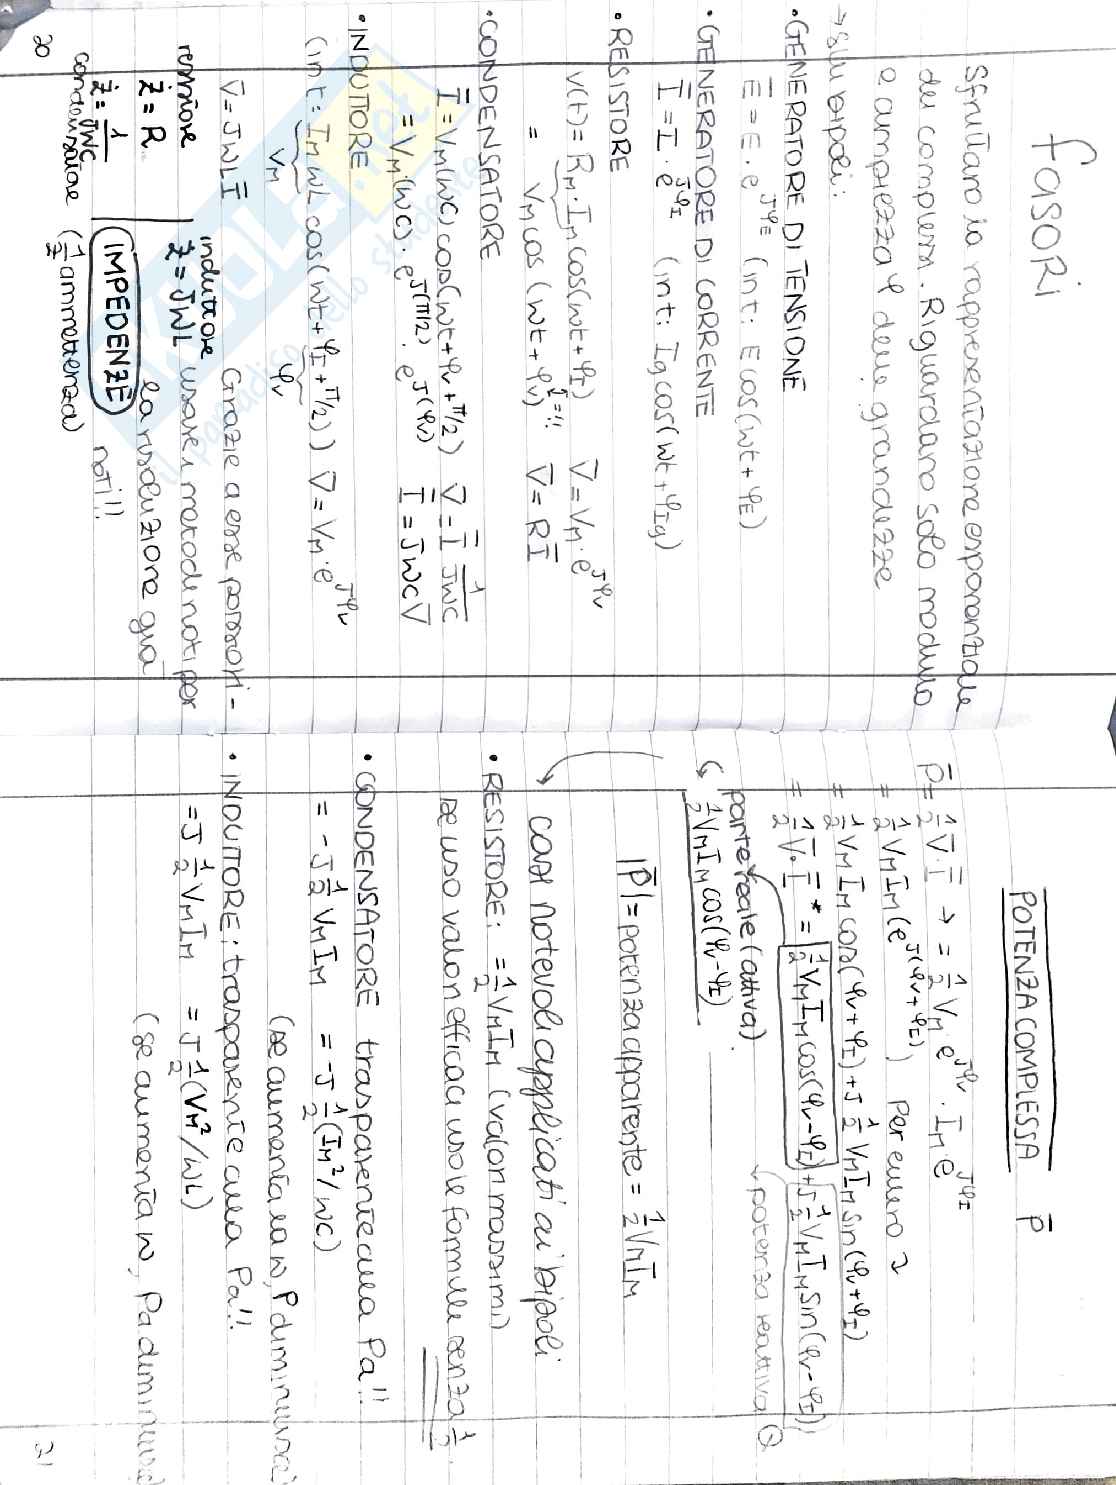 fasori
Sfruttano la rappresentazione esponenziale
dei complessi. Riguardano solo modulo
e ampiezza φ delle grandezze
→ sui bipoli:
• GENERATORE DI TENSIONE
E̅ = E · e^{Jφ_E} (in t: E cos(ωt + φ_E)
• GENERATORE DI CORRENTE
I̅ = I · e^{Jφ_I} (in t: Ig cos(ωt + φ_Ig)
• RESISTORE
v(t) = R_M · I_M cos(ωt + φ_I) V̅ = V_M · e^{Jφ_V}
= V_M cos(ωt + φ_V) V̅ = R I̅
• CONDENSATORE
I̅ = V_M(ωC) cos(ωt + φ_V + π/2) V̅ = I̅ 1/JωC
= V_M · (ωC) · e^{J(π/2)} · e^{J(φ_V)} I̅ = JωC V̅
• INDUTTORE
(in t: I_M ωL cos(ωt + φ_I + π/2)) V̅ = V_M · e^{Jφ_V}
V_M φ_V
V̅ = JωL I̅ Grazie a esse possoni-
resistore induttore usare i metodi noti per
Z̅ = R Z̅ = JωL la risoluzione già
Z̅ = 1/JωC IMPEDENZE noti!!
condensatore (1/Z ammettenza)
20
POTENZA COMPLESSA P̅
P̅ = 1/2 V̅ · I̅ → = 1/2 V_M e^{Jφ_V} · I_M e^{Jφ_I}
= 1/2 V_M I_M (e^{J(φ_V + φ_I)}) Per eulero
= 1/2 V_M I_M cos(φ_V + φ_I) + J 1/2 V_M I_M sin(φ_V + φ_I)
= 1/2 V̅ · I̅* = 1/2 V_M I_M cos(φ_V - φ_I) + J 1/2 V_M I_M sin(φ_V - φ_I)
parte reale (attiva) potenza reattiva Q
1/2 V_M I_M cos(φ_V - φ_I)
|P̅| = potenza apparente = 1/2 V_M I_M
casi notevoli applicati ai bipoli
• RESISTORE: = 1/2 V_M I_M (valori massimi)
se uso valori efficaci uso le formule senza 1/2.
• CONDENSATORE trasparente alla Pa!!
= -J 1/2 V_M I_M = -J 1/2 (I_M²/ωC)
(se aumenta la ω, P diminuisce)
• INDUTTORE: trasparente alla Pa!!
= J 1/2 V_M I_M = J 1/2 (V_M²/ωL)
(se aumenta ω, Pa diminuisce)
21